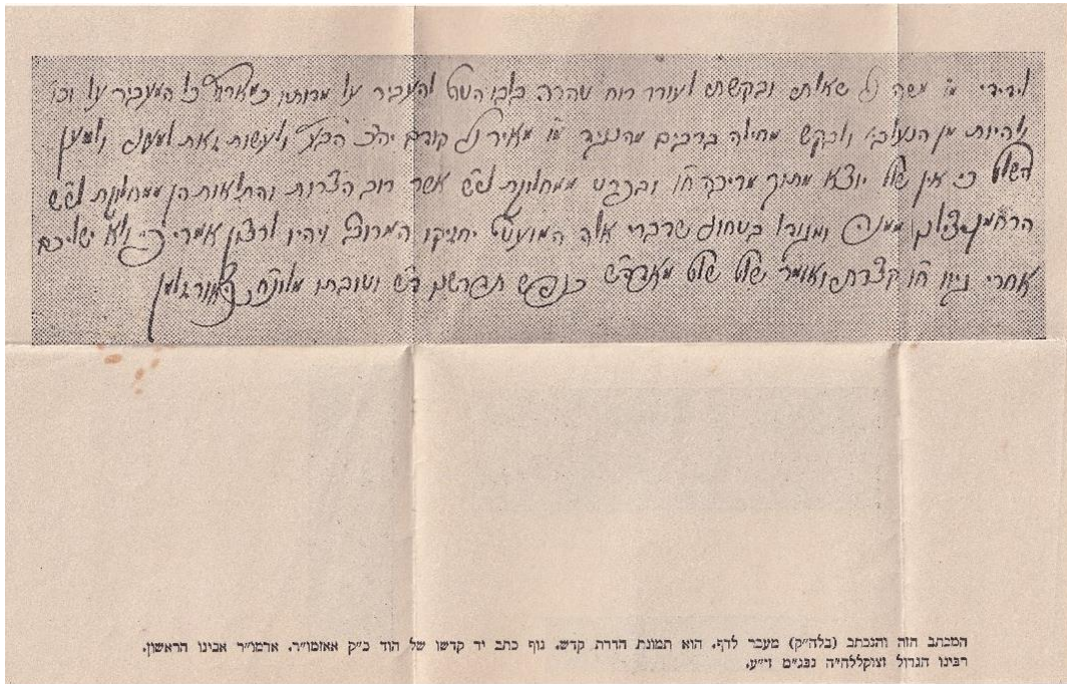 לידידי מו' משה נ"י שאלתי ובקשתי לעורר רוח טהרה בלבו הטוב להעביר על מדותיו כמארז"ל כל המעביר על וכו'
ולהיות מן הנעלבי' ולבקש מחילה ברבים מהנגיד מו' מאיר נ"י קודם יה"כ הבע"ל ולעשות זאת למעני ולמען
השלום כי אין שלום יוצא מתוך מריבה ח"ו ובפרט ממחלוקת לש"ש אשר רוב הצרות והתלאות הן ממחלוקת לש"ש
הרחמן יצילנו ממנה ומגודל בטחוני שדברי אלה המועטים יחזיקו המרובה ויהיו לרצון אמרי פי ולא ישליכם
אחרי גיוו ח"ו קצרתי ואומר שלום שלום כנפש תדרשם דו"ש וטובתו מלונ"ח שניאור זלמן
המכתב הזה והנכתב (בלה"ק) מעבר לדף. הוא תמונת הדרת קדש. גוף כתב יד קדשו של הוד כ"ק אאזמו"ר. אדמו"ר אבינו הראשון.
רבינו הגדול זצוקללה"ה נבג"ם זי"ע.